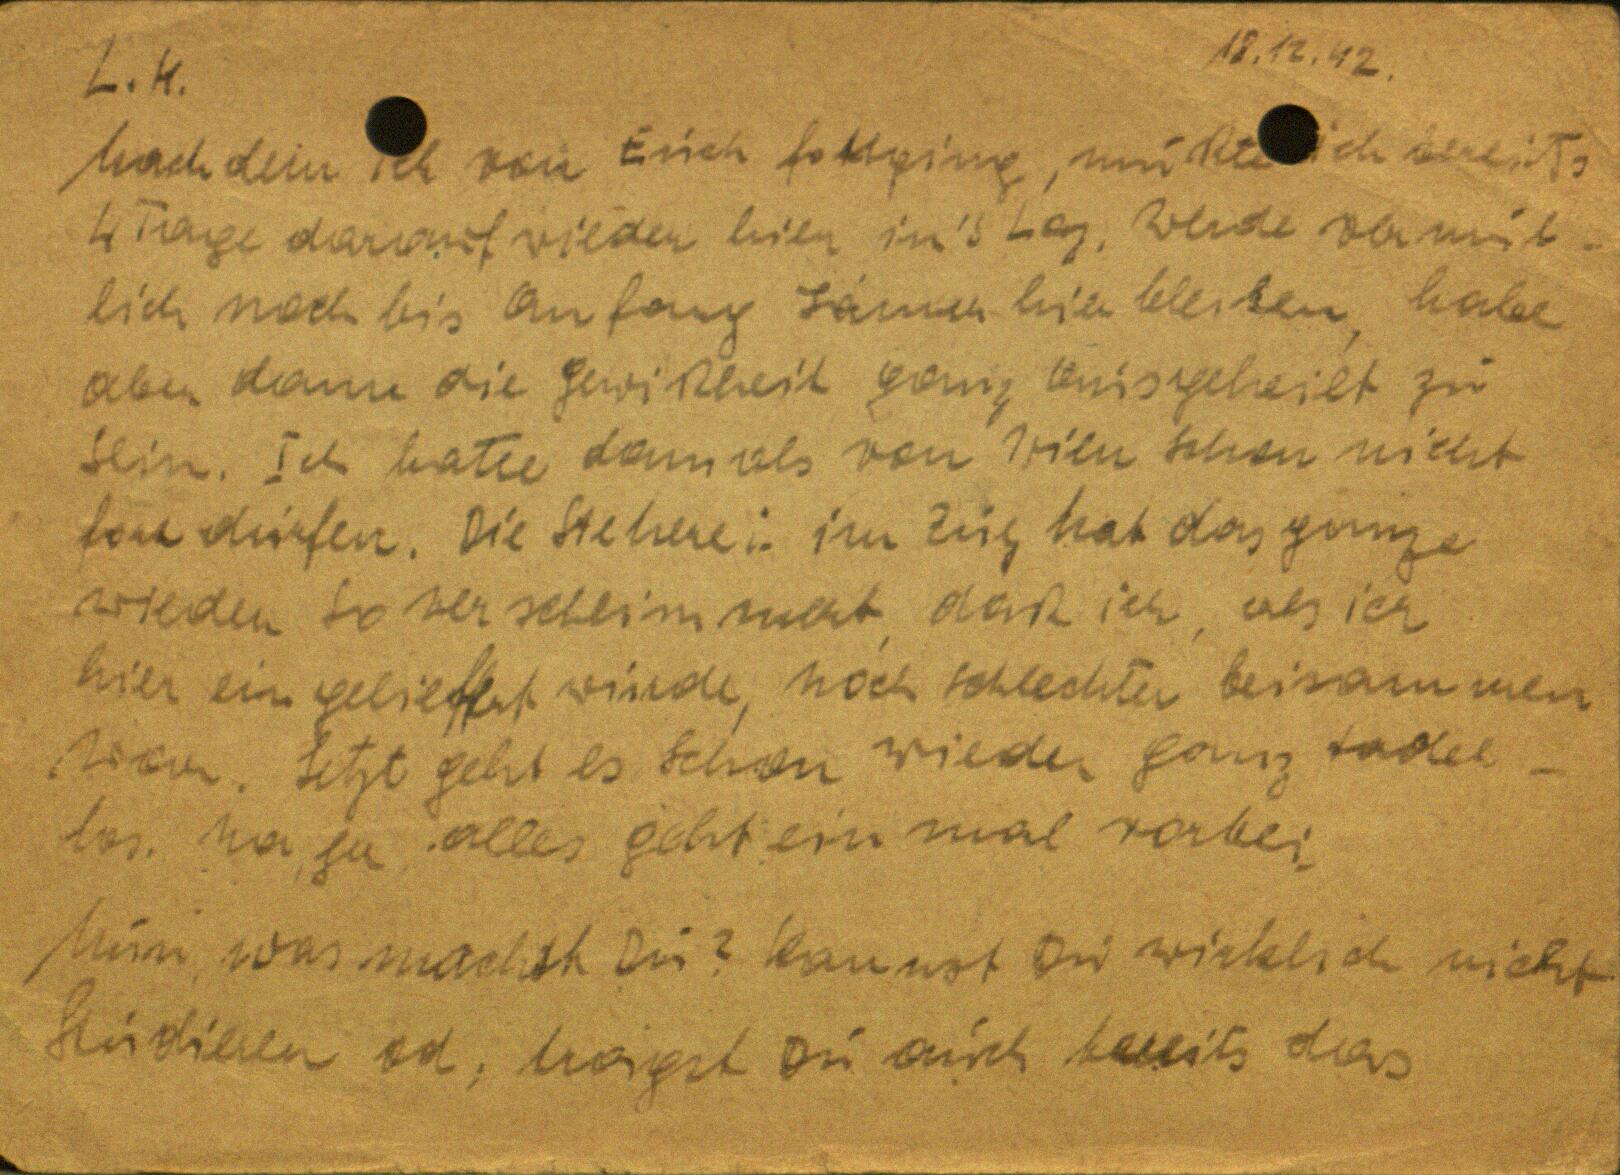 L.H. 18.12.42.
Nachdem ich von Euch fortging, mußte ich bereits
4 Tage darauf wieder hier in's Laz. Werde vermut-
lich noch bis Anfang Jänner hier bleiben, habe
aber dann die Gewißheit ganz ausgeheilt zu
sein. Ich hatte damals von Wien schon nicht
fort dürfen. Die Steherei im Zug hat das ganze
wieder so verschlimmert, daß ich, als ich
hier eingeliefert wurde, noch schlechter beisammen
war. Jetzt geht es schon wieder ganz tadel-
los. Na, ja, alles geht einmal vorbei,
Nun, was machst Du? Kannst Du wirklich nicht
Studieren od. trägst Du auch bereits das